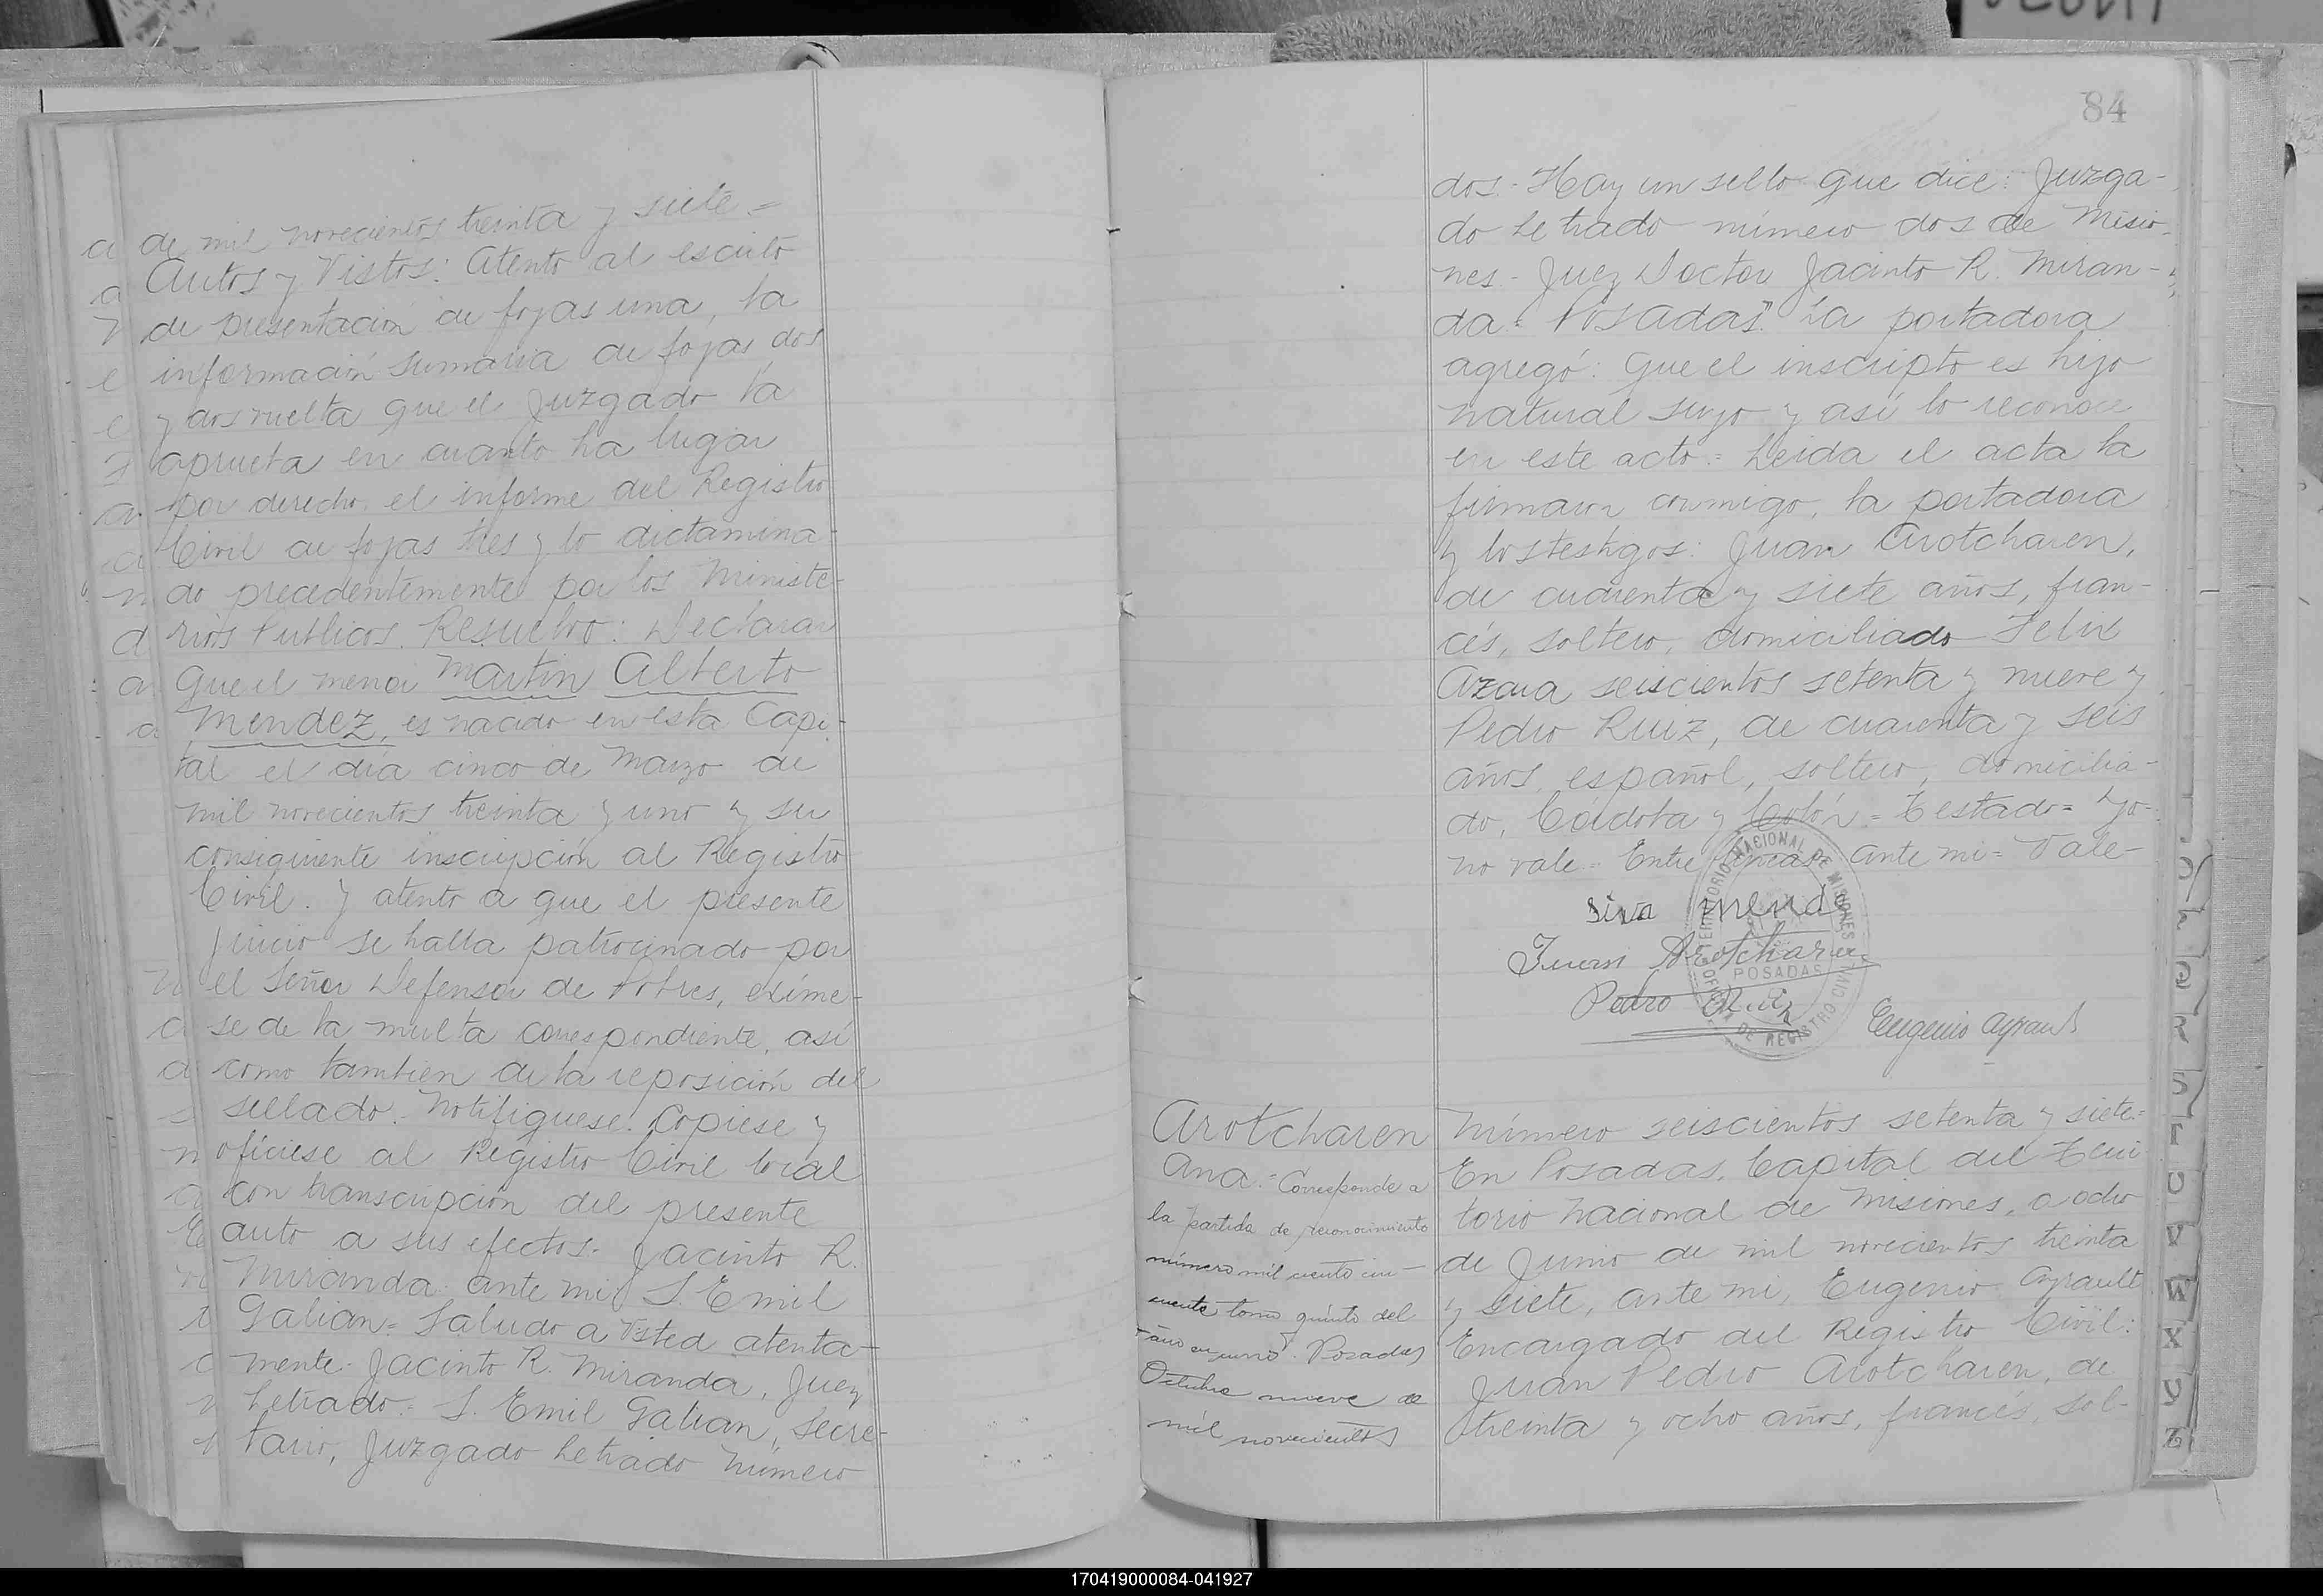 de mil novecientos treinta y siete =
Autos y Vistos: Atento al escrito
de presentación de fojas una, la
información sumaria de fojas dos
y dos vuelta que el Juzgado la
aprueba en cuanto ha lugar
por derecho, el informe del Registro
Civil de fojas tres y lo dictamina-
do precedentemente por los Ministe-
rios Publicos. Resuelvo: Declarar
que el menor Martin Alberto
Mendez, es nacido en esta Capi-
tal el día cinco de Marzo de
mil novecientos treinta y uno y su
consiguiente inscripción al Registro
Civil. Y atento a que el presente
juicio se halla patrocinado por
el Señor Defensor de Pobres, exíme-
se de la multa correspondiente, así
como tambien de la reposición del
sellado. Notifiquese. Copiese y
oficiese al Registro Civil local
con transcripción del presente
auto a sus efectos. Jacinto R.
Miranda. ante mi J. Emil
Galian = Saludo a Usted atenta-
mente. Jacinto R. Miranda, Juez
Letrado = J. Emil Galian, Secre-
tario, Juzgado Letrado Número
84
dos.- Hay un sello que dice: Juzga-
do Letrado número dos de Misio-
nes.- Juez Doctor Jacinto R. Miran-
da = Posadas". La portadora
agregó: Que el inscripto es hijo
natural suyo y así lo reconoce
en este acto = Leida el acta la
firmaron conmigo, la portadora
y los testigos: Juan Arotcharen,
de cuarenta y siete años, fran-
cés, soltero, domiciliado Felix
Azara seiscientos setenta y nueve y
Pedro Ruiz, de cuarenta y seis
años, español, soltero, domicilia-
do, Córdoba y Colón = Testado = yo =
no vale = Entre lineas = ante mi = Vale -
TERRITORIO NACIONAL DE MISIONES
siva mende
Juan Arotcharen
POSADAS
Pedro Ruiz
OFICINA DE REGISTRO CIVIL
Eugenio Ayrault
Arotcharen
Ana.= Corresponde a
la partida de reconocimiento
número mil ciento cin-
cuenta tomo quinto del
año en curso. Posadas
Octubre nueve de
mil novecientos
Número seiscientos setenta y siete =
En Posadas, Capital del Terri
torio Nacional de Misiones, a ocho
de Junio de mil novecientos treinta
y siete, ante mi, Eugenio Ayrault
Encargado del Registro Civil:
Juan Pedro Arotcharen, de
treinta y ocho años, francés, sol-
R
S
T
U
V
W
X
Y
Z
170419000084-041927